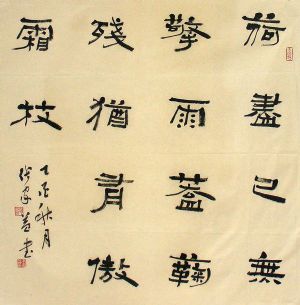 荷盡已無
擎雨蓋蘜
殘猶有傲
霜枝
秋月
書